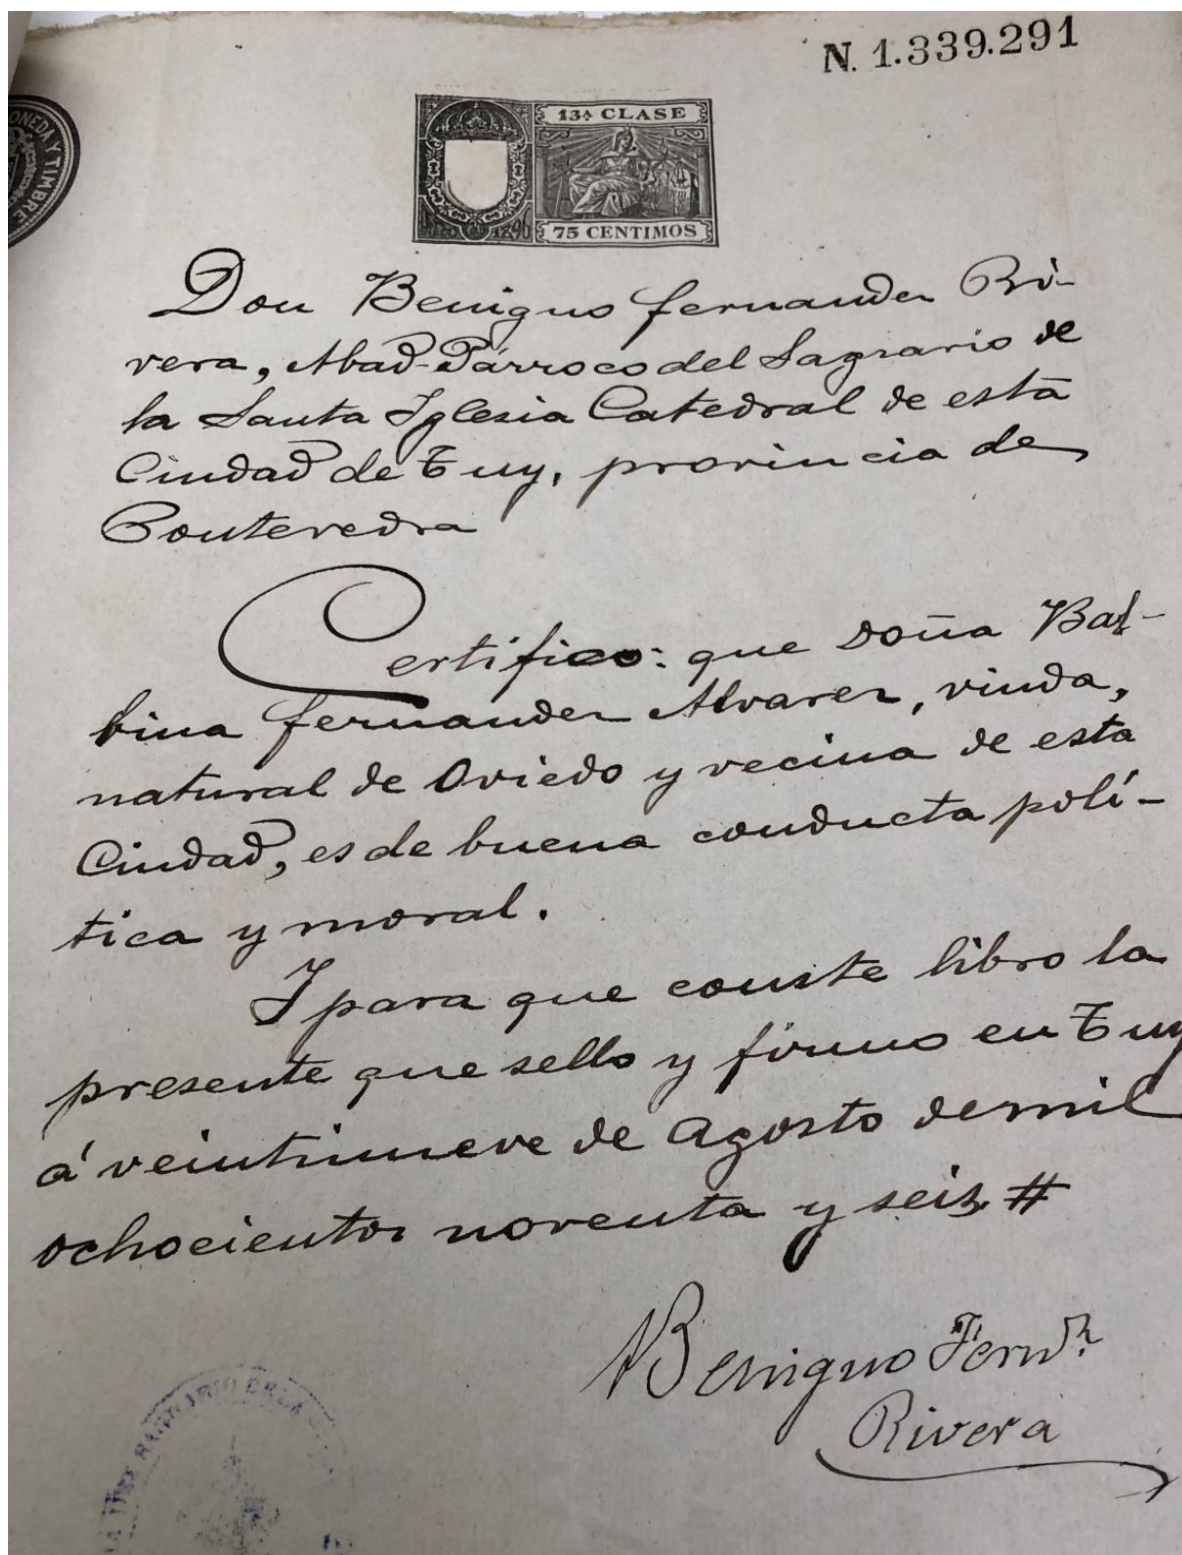 N. 1.339.291
MONEDA Y TIMBRE
13ª CLASE
1896
75 CENTIMOS
Don Benigno Fernandez Ri-
vera, Abad-Párroco del Sagrario de
la Santa Iglesia Catedral de esta
Ciudad de Tuy, provincia de
Pontevedra
Certifico: que Doña Bal-
bina Fernandez Alvarez, viuda,
natural de Oviedo y vecina de esta
Ciudad, es de buena conducta polí-
tica y moral.
Y para que conste libro la
presente que sello y firmo en Tuy
á veintinueve de Agosto de mil
ochocientos noventa y seis. #
Benigno Fernz.
Rivera